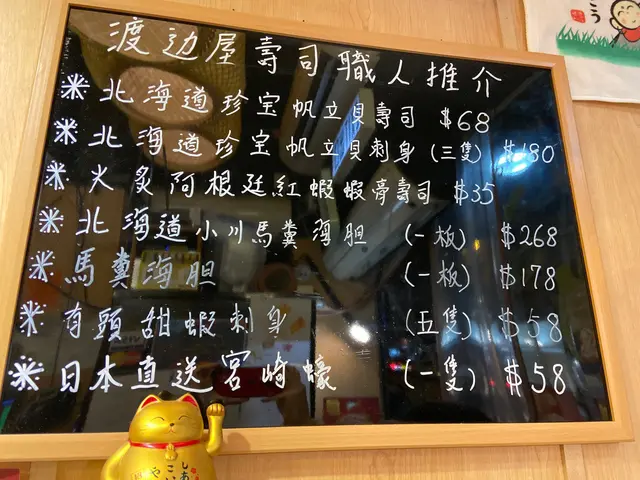 渡边屋壽司職人推介
※北海道珍宝帆立貝壽司 $68
※北海道珍宝帆立貝刺身 (三隻) $180
※火炙阿根廷紅蝦蝦膏壽司 $35
※北海道小川馬糞海胆 (一板) $268
※馬糞海胆 (一板) $178
※有頭甜蝦刺身 (五隻) $58
※日本直送宮崎蠔 (一隻) $58